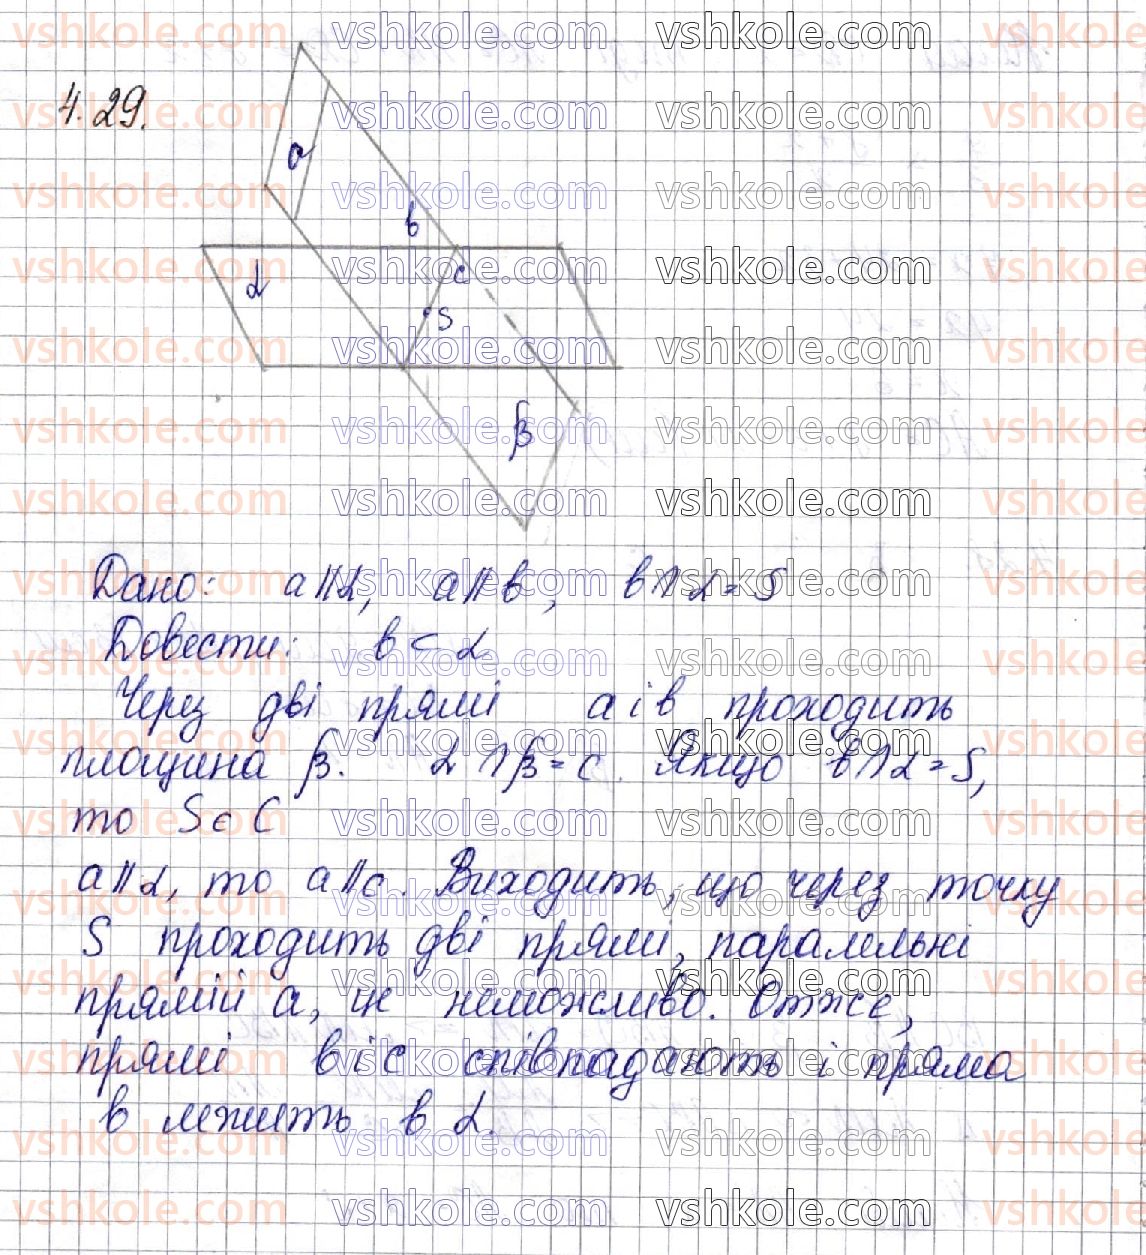 4.29.
a
в
α
c
S
β
Дано: a∥α, a∥в, в∩α=S
Довести: в⊂α
Через дві прямі a і в проходить
площина β. α∩β=c. Якщо в∩α=S,
то S∈C
a∥α, то a∥c. Виходить, що через точку
S проходить дві прямі, паралельні
прямій a, це неможливо. Отже,
прямі в і c співпадають і пряма
в лежить в α.
vshkole.com